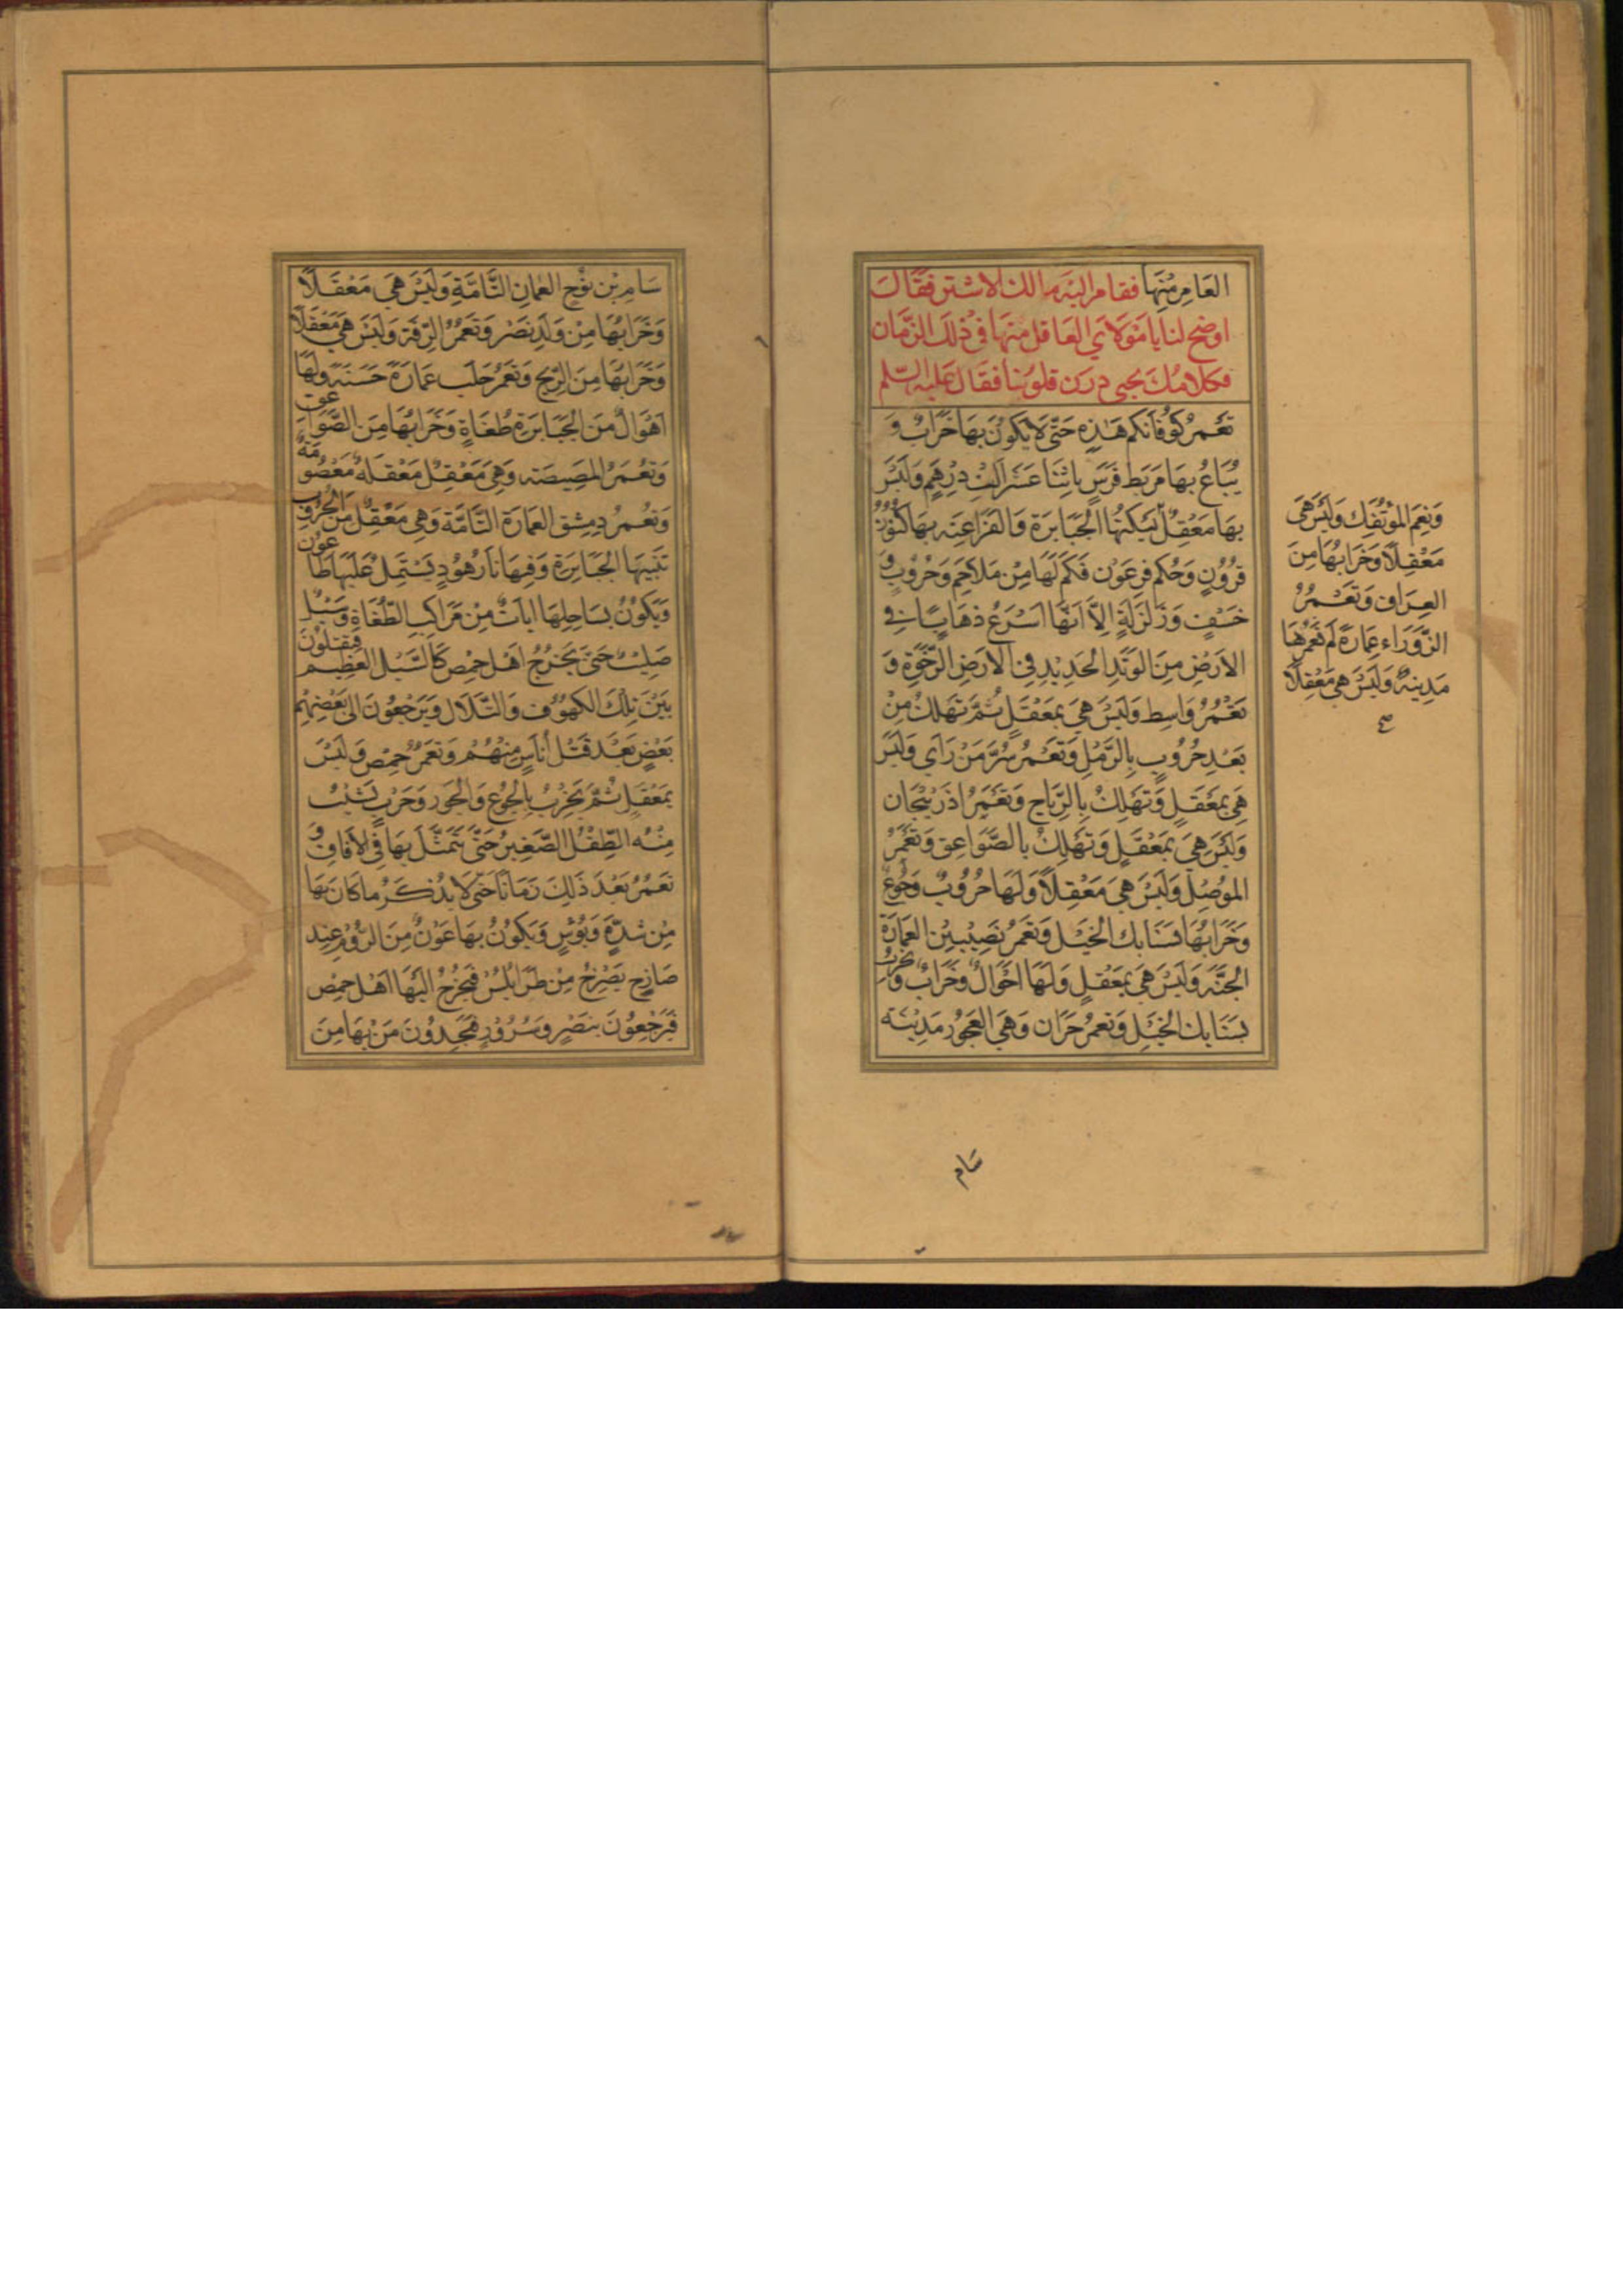 العَامِرِ مِنْهَا فقام اليه مالك الاشتر فقال
اوضح لنا يا مولاي العاقل منها في ذلك الزمان
فكلامك يحيي درن قلوبنا فقال عليه السلم
تَعْمُرُ كُوفَانَكُم هٰذِهِ حَتّى لَا يَكُونَ بِهَا خَرَابٌ وَ
يُبَاعُ بِهَا مَرْبَط فَرَسٍ بِاثْنَا عَشَر اَلْفِ دِرْهَمٍ وَلَيْسَ
بِهَا مَعْقِلٌ يَسْكُنُهَا الْجَبَابِرَة وَالفَرَاعِنَه بِهَا كُنُوز
قرُونٍ وَحُكم فِرعَوْن فَكَمْ لَهَا مِنْ مَلَاحِمَ وَحُرُوبٍ وَ
خَسْفٍ وَزَلْزَلَةٍ اِلَّا اَنَّهَا اَسْرَعُ ذهَابًا فِي
الاَرْضِ مِنَ الوَتَدِ الحَدِيْدِ فِي الاَرْضِ الرَّخْوَةِ وَ
تَعْمُرُ وَاسِط وَلَيْسَ هِيَ بِمَعْقَلٍ ثُمَّ تَهْلِكُ مِنْ
بَعْدِ حُرُوبٍ بِالرَّمْلِ وَتَعْمُر سُرَّ مَنْ رَآي وَلَيْسَ
هِيَ بِمَعْقَلٍ وَتَهْلِكُ بِالرِّيَاحِ وَتَعْمُرُ اذَرْبِيْجَان
وَلَيْسَ هِيَ بِمَعْقَلٍ وَتَهْلِكُ بِالصَّوَاعِقِ وَتَعْمُرُ
المَوْصِل وَلَيْسَ هِيَ مَعْقِلًا وَلَهَا حُرُوبٌ وَجُوعٌ
وَخَرَابُهَا سَنَابك الخَيْل وَتَعْمُر نَصِيْبِيْن العِمَارَة
الحَسَنَه وَلَيْسَ هِيَ بِمَعْقِلٍ وَلَهَا احْوَالٌ وَخَرَابٌ وَتخرب
بِسَنَابك الخَيْل وَتَعْمُرُ حَرَّان وَهِيَ العَجُوز مَدِيْنَه
وَنعمر المؤتفِك وَلَيْسَ هِيَ
مَعْقِلًا وَخَرَابُهَا مِنَ
العِرَاقِ وَتَعْمُرُ
الزَّوْرَاء عِمَارَة لَم تَعْمُرْهَا
مَدِينَة وَلَيْسَ هِيَ مَعْقِلًا
صح
سَام
سَامِ بْن نُوْحٍ العمَان التَّامَّةِ وَلَيْسَ هِيَ مَعْقَلًا
وَخَرَابُهَا مِنْ وَلَدِ نَصْر وَتَعْمُرُ الرِّقَّة وَلَيْسَ هِيَ مَعْقَلًا
وَخَرَابهَا مِنَ الرِّيْحِ وَتَعْمُرُ حَلَب عمَارَة حَسَنَه وَلَهَا
اَهْوَالٌ مِنَ الجَبَابِرَة طُغَاةٍ وَخَرَابُهَا مِنَ الصَّوَاعق
وَتعْمَر المَصِيصَه وَهِيَ مَعْقِلٌ مَعْقلَة مَعْصُومَة
وَتَعْمرُ دِمِشْق العمَارَة التَّامَّة وَهِيَ مَعْقِلٌ مِنَ الحُرُوب
تبنيهَا الجَبَابِرَة وَفِيهَا نَارُ هُوْدٍ يَشْتَمِلُ عَلَيْهَا طَاعُون
وَيَكُونُ بسَاحِلِهَا ايَات مِنْ مَرَاكِبِ الطُّغَاة وَسَيْلُ
صَلِيْب حَتّى يَخْرُجُ اَهْل حِمْص كَالسَّيْل العَظِيْم فيقتلُوْنَ
بَيْنَ تِلْكَ الكُهُوْف وَالتِّلَال وَيَرْجعُوْنَ الى بَعْضِهِم
بَعْضٍ بَعْدَ قَتْل اُنَاسٍ مِنْهُمْ وَتَعْمُرُ حِمْص وَلَيْسَ
بِمَعْقِلٍ ثُمَّ تَخْرِبُ بِالجُوْعِ وَالجَوْر وَحَرْبٍ يَشِيْبُ
مِنْهُ الطِّفْلُ الصَّغِيْرُ حَتّى يَتَمَثَّلَ بِهَا فِي الآفَاقِ وَ
تَعْمُرُ بَعْدَ ذَلِكَ زَمَانًا حَتّى لَا يُذْكَرُ مَا كَانَ بِهَا
مِنْ شِدَّةٍ وَبُؤْسٍ وَيَكُونُ بِهَا عَوْنٌ مِنَ الرُّوْمِ عِنْد
صَارِخٍ يَصْرُخُ مِنْ طَرَابُلُس فَيَخْرُجُ اليْهَا اَهْل حِمْص
فَيَرْجِعُوْنَ بِنَصْرٍ وَسُرُوْرٍ فَيَجِدُوْنَ مَنْ بِهَا مِنَ